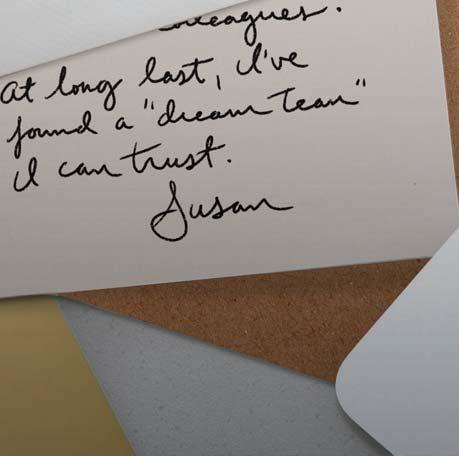 colleagues.
At long last, I've
found a "dream team"
I can trust.
Susan